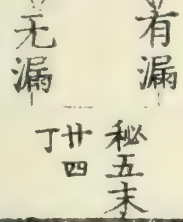 有漏
无漏
秘五末
廿四
丁